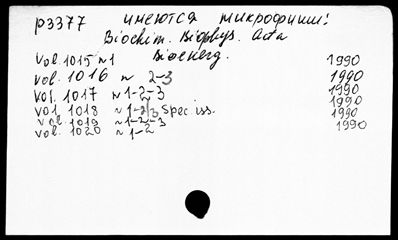 р3377 имеются микрофиши!
Biochim. Biophys. Acta
Bioenerg.
Vol. 1015 N1 1990
Vol. 1016 N 2-3 1990
Vol. 1017 N 1-2-3 1990
Vol. 1018 N 1-2/3 Spec. iss. 1990
Vol. 1019 N 1-2-3 1990
Vol. 1020 N 1-2 1990